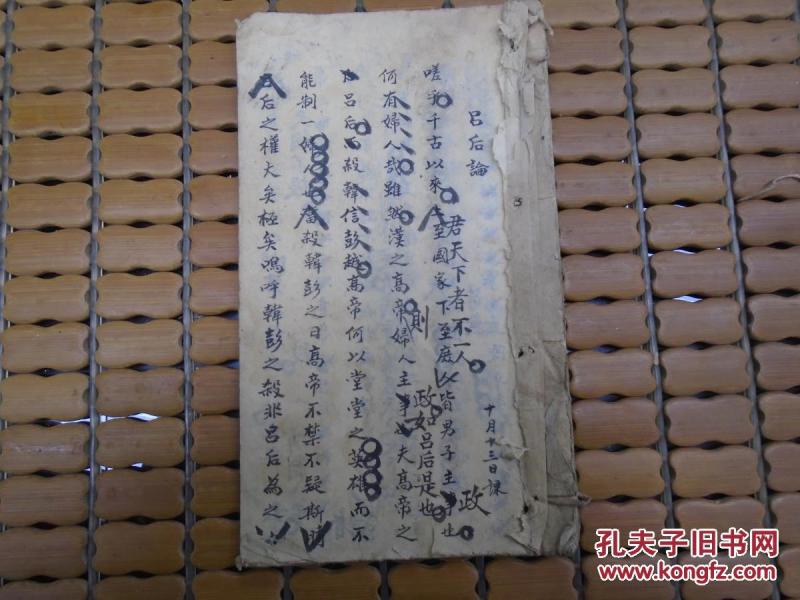 呂后論
十月十三日課
嗟乎千古以來上至國家下至庭以皆男子主事也
君天下者不一人
政
何有婦人哉雖然漢之高帝婦人主事也夫高帝之
則
政如呂后是也
呂后而殺韓信彭越高帝何以堂堂之英雄而不
能制一婦人當殺韓彭之日高帝不禁不疑斯時
呂后之權大矣極矣嗚呼韓彭之殺非呂后為之
孔夫子旧书网
www.kongfz.com